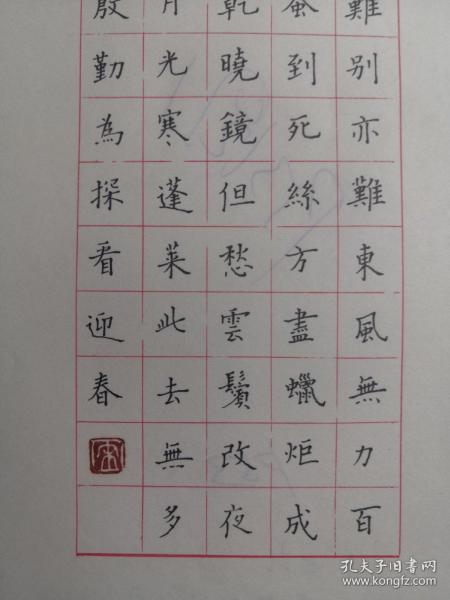 難別亦難東風無力百
蚕到死絲方盡蠟炬成
乾曉鏡但愁雲鬢改夜
月光寒蓬萊此去無多
殷勤為探看迎春
孔夫子旧书网
www.kongfz.com